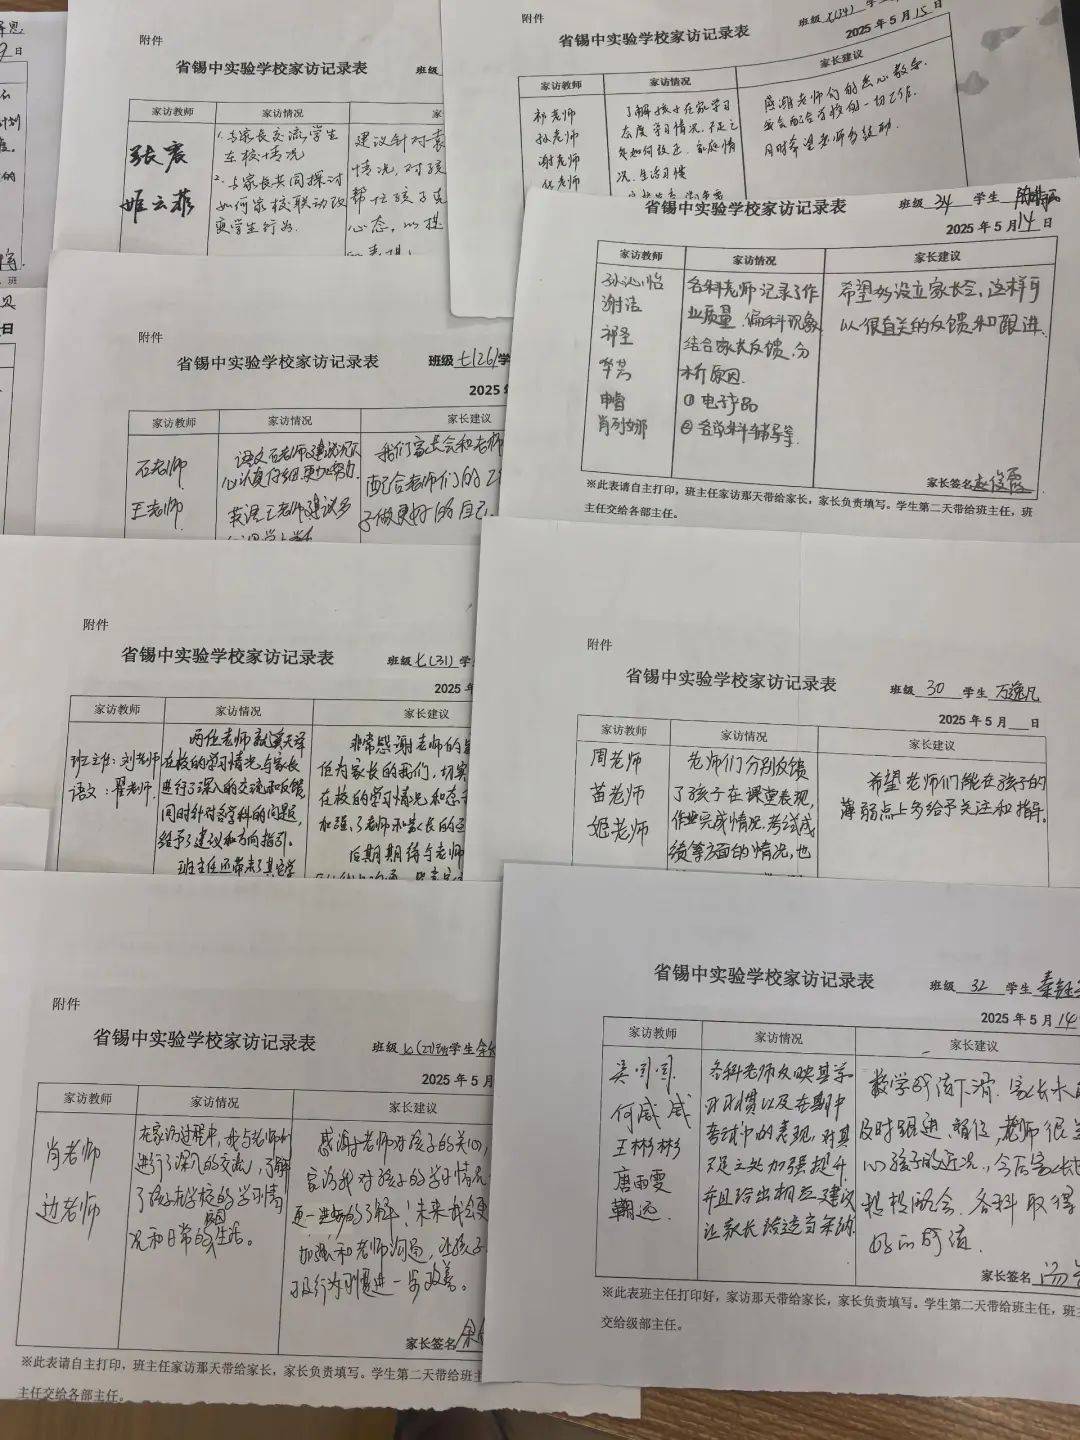 9日
附件
省锡中实验学校家访记录表
班级
家访教师
家访情况
张震
姬云菲
1.与家长交流,学生
在校情况
2.与家长共同探讨
如何家校联动改
变学生行为.
建议针对
情况,对孩
帮忙孩子
心态,以
附件
省锡中实验学校家访记录表
班级 七(34) 学生
2025年5月15日
家访教师
家访情况
家长建议
祁老师
孙老师
谢老师
了解孩子在家学习
态度 学习情况.不足之
处如何改正.家庭情
况.生活习惯
感谢老师们的悉心教导.
我会配合学校的一切工作.
同时希望老师多鼓励.
省锡中实验学校家访记录表
班级 34 学生
2025年5月14日
家访教师
家访情况
家长建议
孙沁怡
谢洁
祁圣
华芸
申睿
肖列娜
各科老师记录了作
业质量.偏科现象
结合家长反馈.分
析原因.
①电子产品
②各学科辅导等.
希望多设立家长会,这样可
以很直关的反馈和跟进.
家长签名
※此表请自主打印,班主任家访那天带给家长,家长负责填写。学生第二天带给班主任,班
主任交给各部主任。
附件
省锡中实验学校家访记录表
班级 七(26) 学
2025
家访教师
家访情况
家长建议
石老师
王老师
语文石老师建议沉下
心认真仔细.更加努力.
英语王老师建议多
我们家长会和老师
配合老师们的工
子做更好的自己.
附件
省锡中实验学校家访记录表
班级 七(31) 学
2025年
家访教师
家访情况
家长建议
班主任:刘老师
语文:翟老师.
两位老师就冀天泽
在校的学习情况与家长
进行了深入的交流和反馈,
同时针对各学科的问题,
给予了建议和方向指引。
班主任还带来了其它学
非常感谢老师的
作为家长的我们,切实
在校的学习情况和态
加强了老师和家长的
后期期待与老师
附件
省锡中实验学校家访记录表
班级 30 学生 万逸凡
2025年5月 日
家访教师
家访情况
家长建议
周老师
苗老师
姬老师
老师们分别反馈
了孩子在课堂表现,
作业完成情况.考试成
绩等方面的情况,也
希望老师们能在孩子的
薄弱点上多给予关注和指导。
附件
省锡中实验学校家访记录表
班级 七(27)班 学生 余
2025年5月
家访教师
家访情况
家长建议
肖老师
边老师
在家访过程中,我与老师们
进行了深入的交流,了解
了孩子在学校的学习情
况和日常的校园生活。
感谢老师对孩子的关心,
家访我对孩子的学习情况
更一进步的了解!未来我会更
加强和老师沟通,让孩子
习及行为习惯进一步改善。
家长签名
※此表请自主打印,班主任家访那天带给家长,家长负责填写。学生第二天带给班主
主任交给各部主任。
省锡中实验学校家访记录表
班级 32 学生 秦钰
2025年5月14
家访教师
家访情况
家长建议
吴闫闫.
何威威
王彬彬
唐雨雯
各科老师反映其学
习习惯以及在期中
考试中的表现,对其
不足之处加强提升,
并且给出相应建议
让家长给适当采纳.
数学成绩下滑.家长未
及时跟进、督促,老师很关
心孩子的近况.,今后家长
积极配合.各科取得
好的成绩.
家长签名
※此表班主任打印好,家访那天带给家长,家长负责填写。学生第二天带给班主任,班主
交给级部主任。